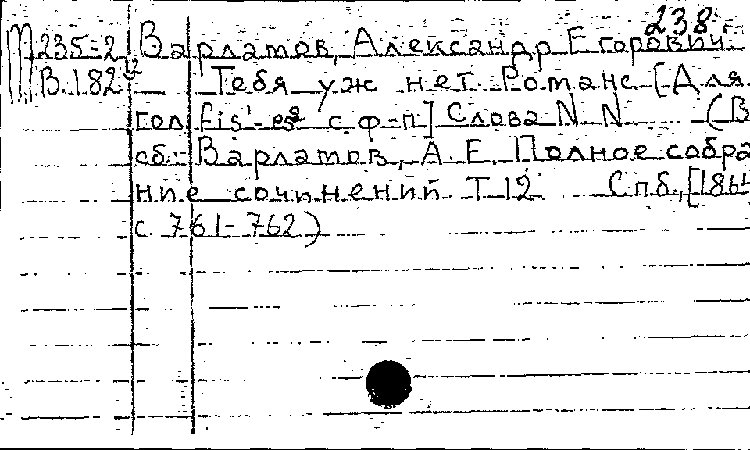 238
М 235-2 Варламов, Александр Егорович.
В.182 Тебя уж нет. Романс [Для
гол. fis¹-es² с ф-п] Слова N N (В
сб.: Варламов, А. Е. Полное собра
ние сочинений Т 12 Спб., [186
с. 761-762)